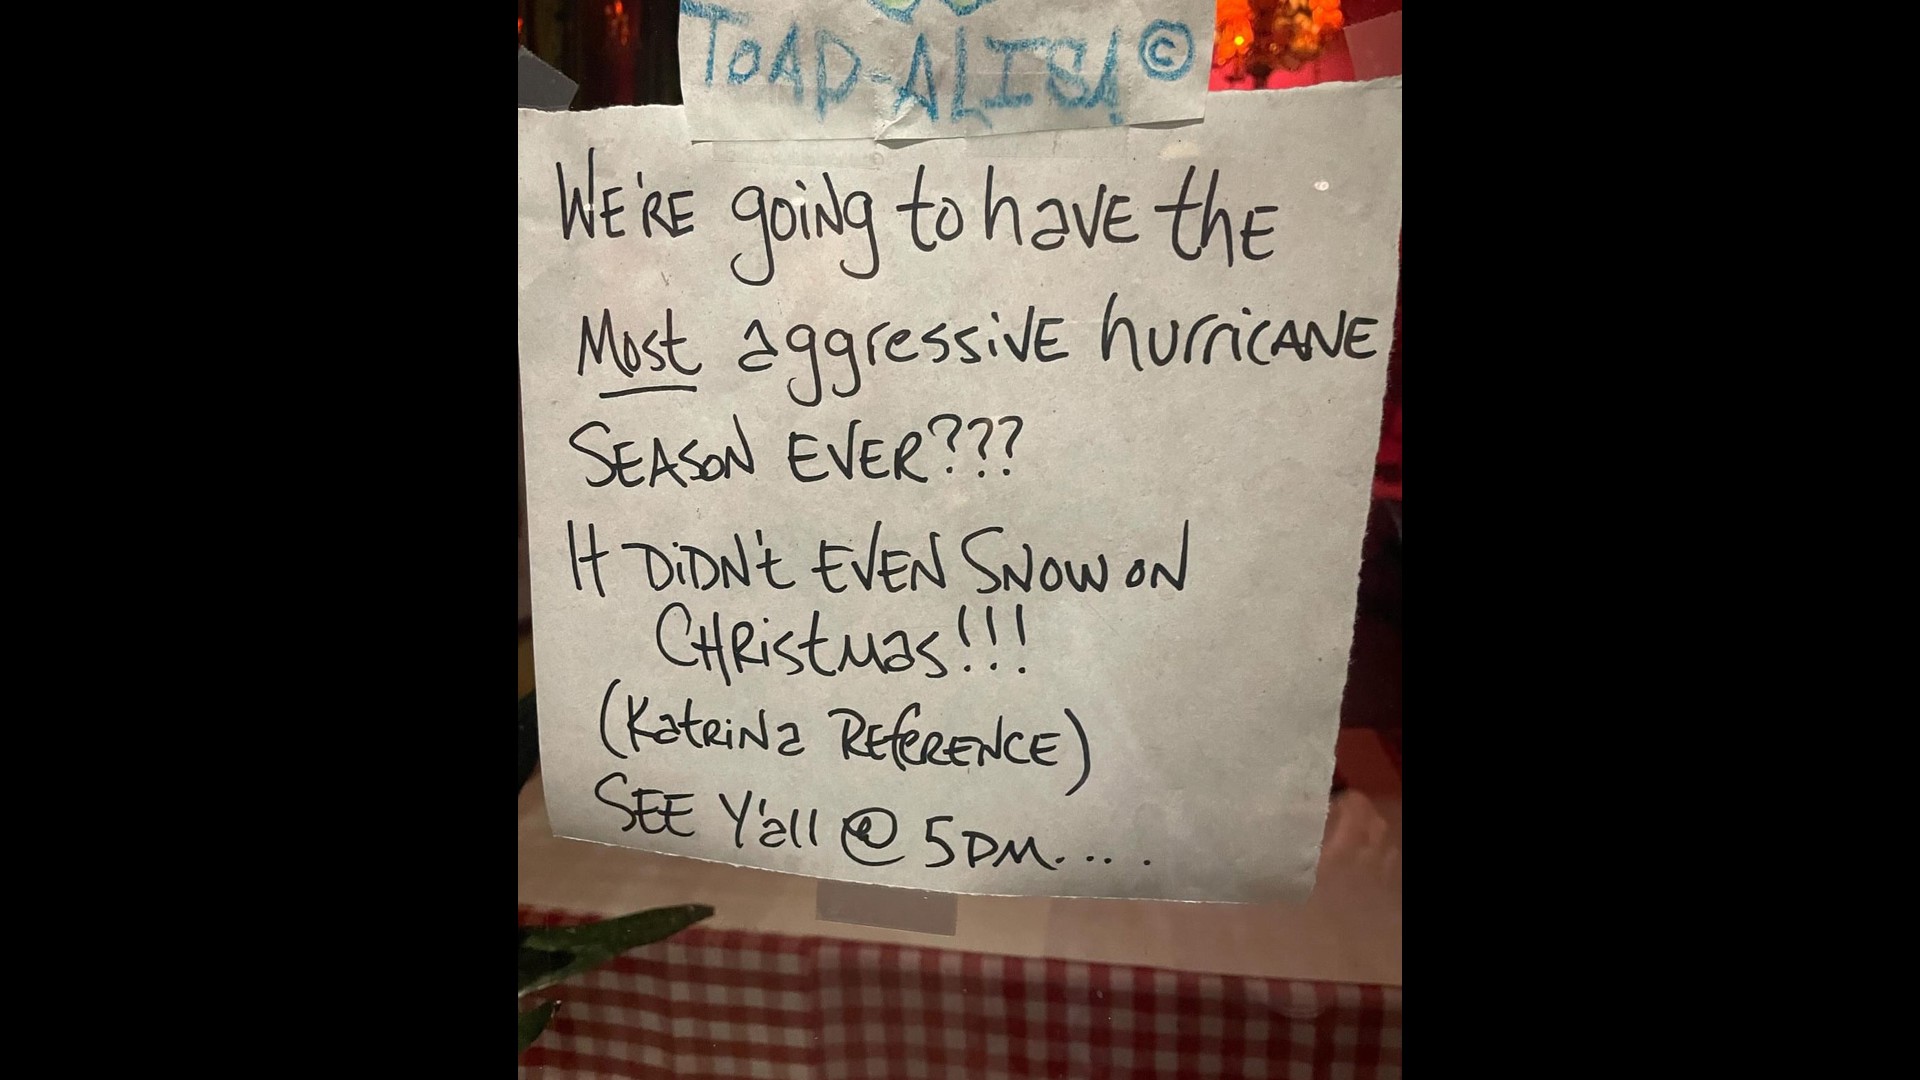 TOAD-ALISA ©
WE'RE going to have the
Most aggressive hurricane
SEASON EVER???
It DiDN't EVEN SNOW ON
CHRistmas!!!
(Katrina REFERENCE)
SEE Y'all @ 5PM....